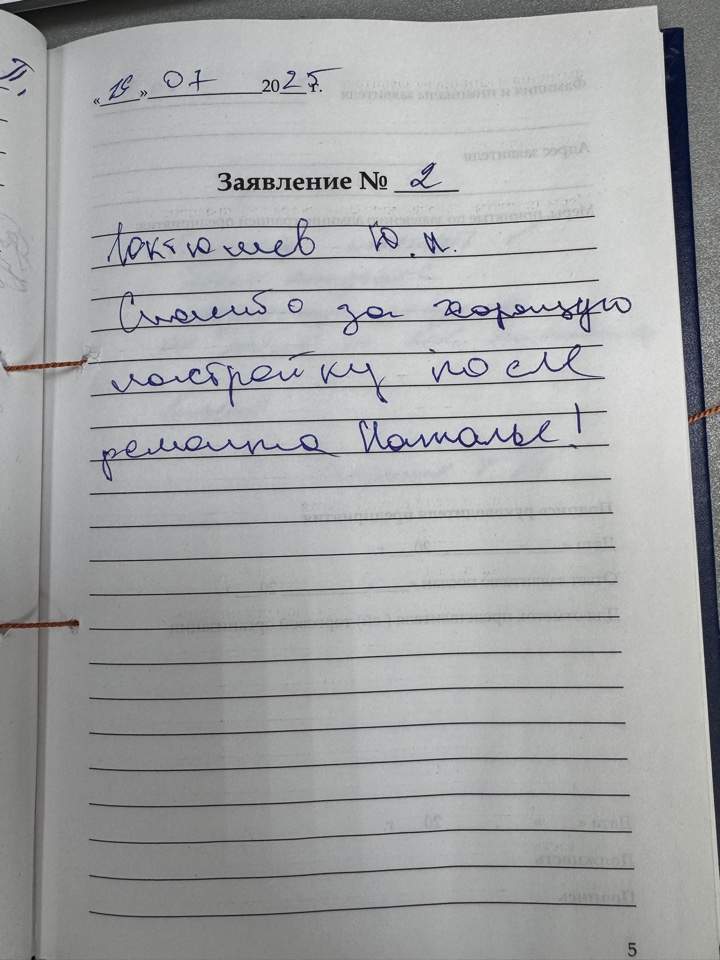 «19» 07 2025 г.
Заявление № 2
Ю.А.
Спасибо за хорошую
настройку после
ремонта Наталье!
5